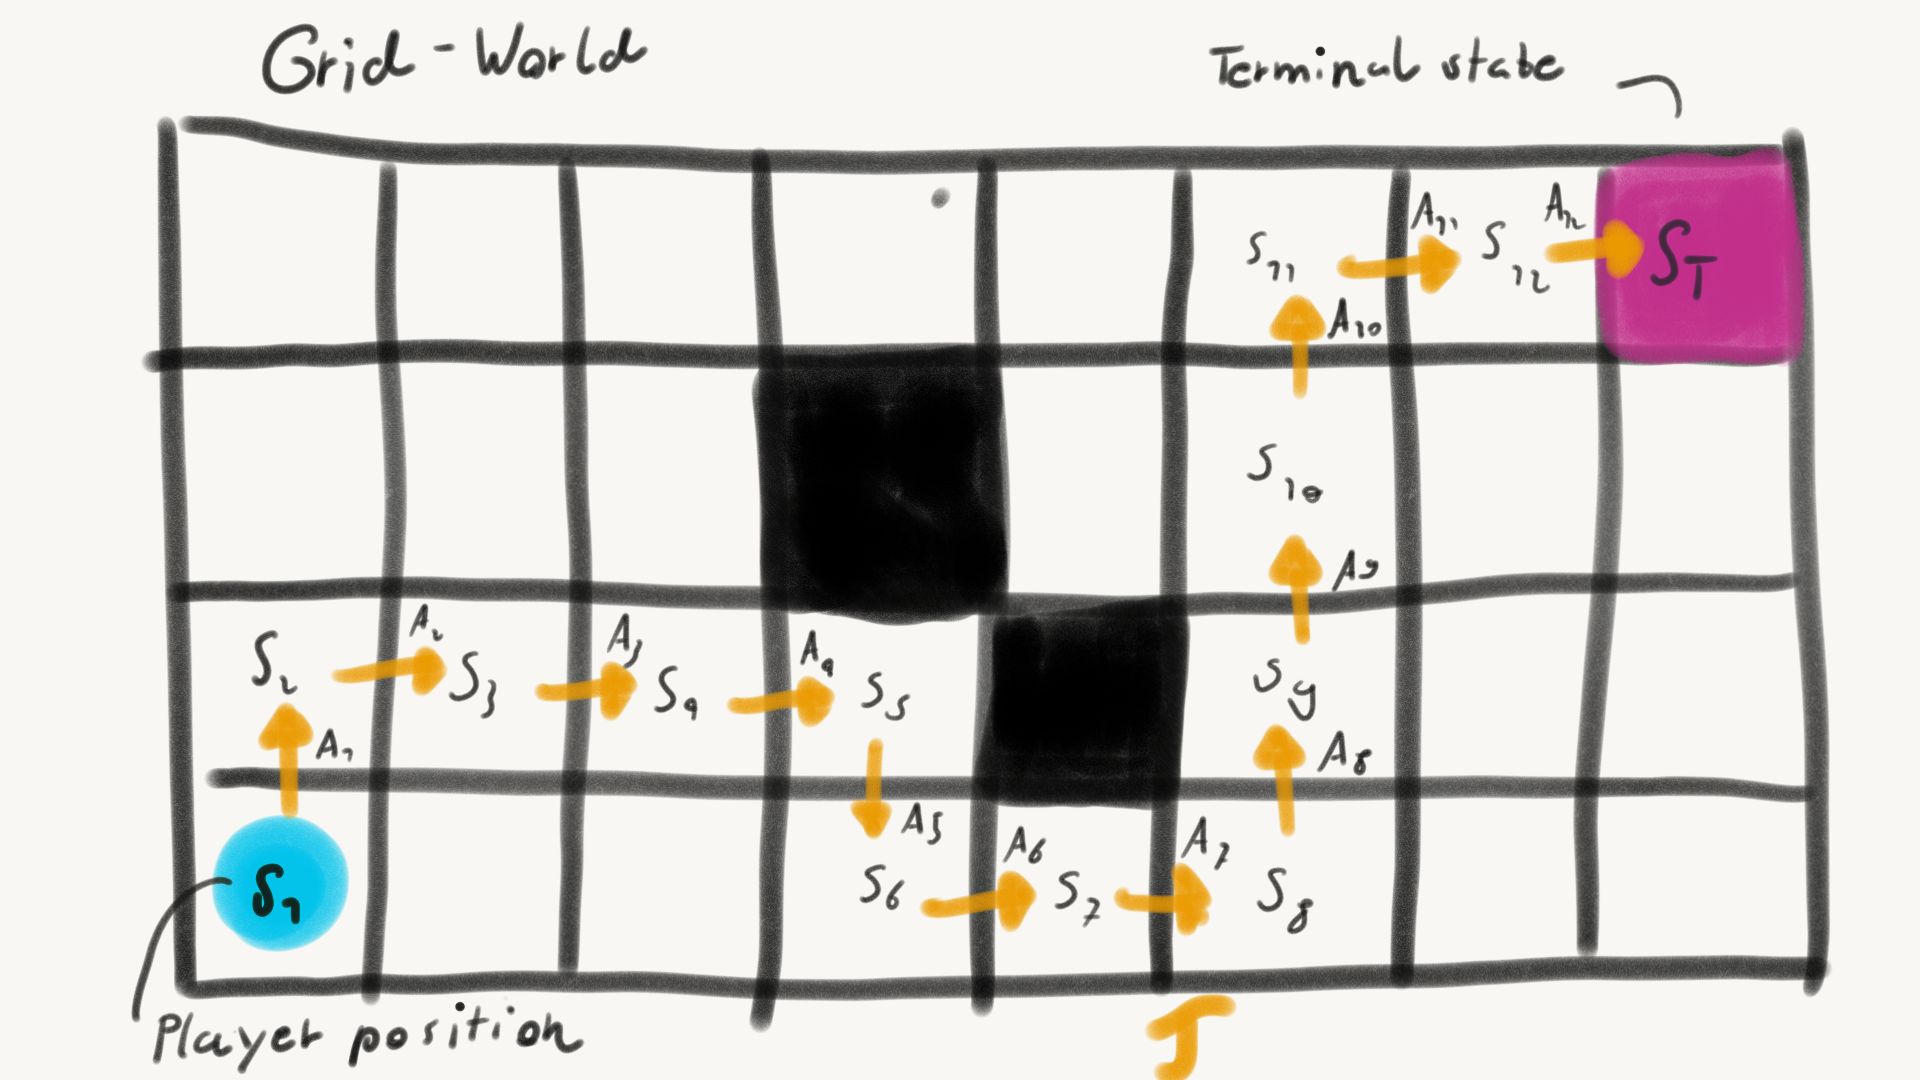 Grid-World
Terminal state
S11 A11 S12 A12 ST
A10
S10
A9
S2 A2 S3 A3 S4 A4 S5 S9
A1 A5 A8
S1 S6 A6 S7 A7 S8
Player position